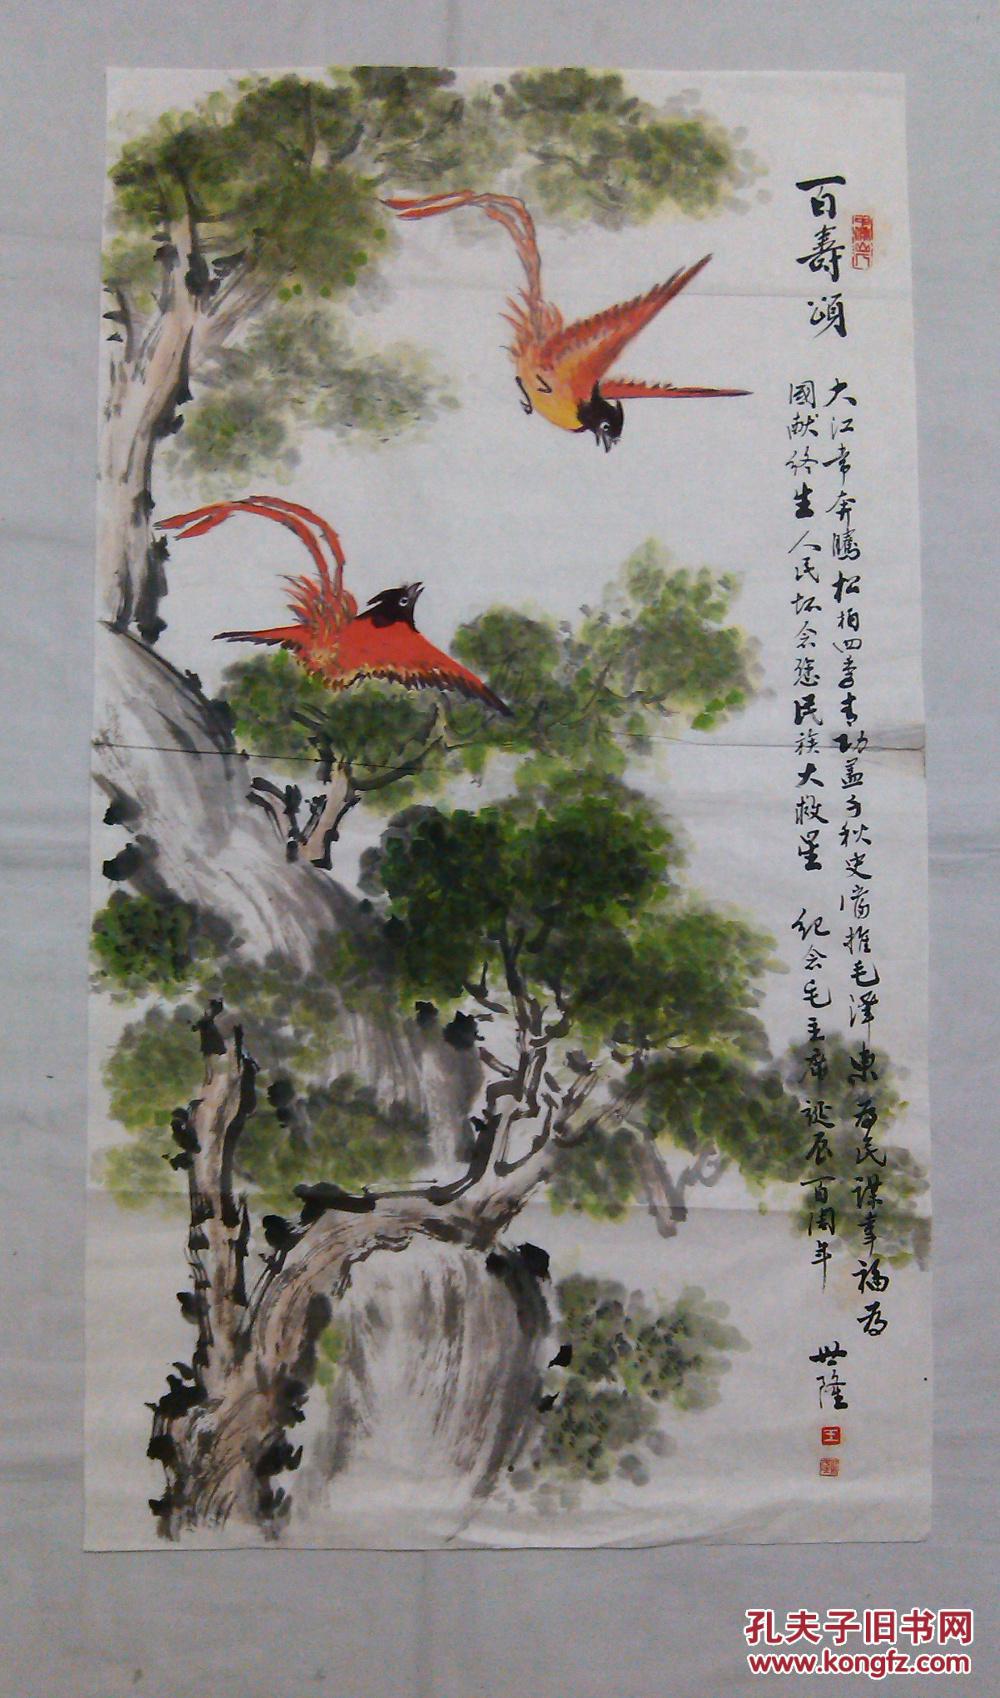 百壽頌
大江常奔騰松柏四季青功盖千秋史當推毛澤東為民謀幸福為
國献终生人民怀念您民族大救星 纪念毛主席诞辰百周年
世隆
王
孔夫子旧书网
www.kongfz.com